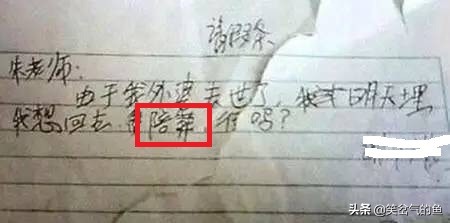 请假条
朱老师:
由于我外婆去世了,我 明天埋
我想回去 陪葬,行吗?
头条 @笑岔气的鱼